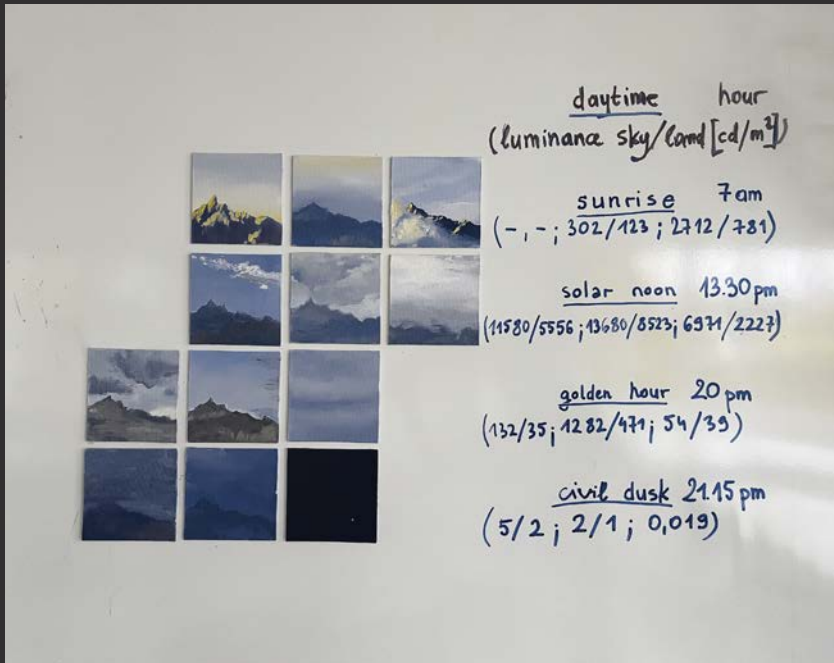 daytime hour
(luminance sky/land [cd/m²])
sunrise 7am
(-, -; 302/123 ; 2712/781)
solar noon 13.30 pm
(11580/5556 ; 13680/8523; 6971/2227)
golden hour 20 pm
(132/35; 1282/471; 54/39)
civil dusk 21.15 pm
(5/2 ; 2/1 ; 0,019)